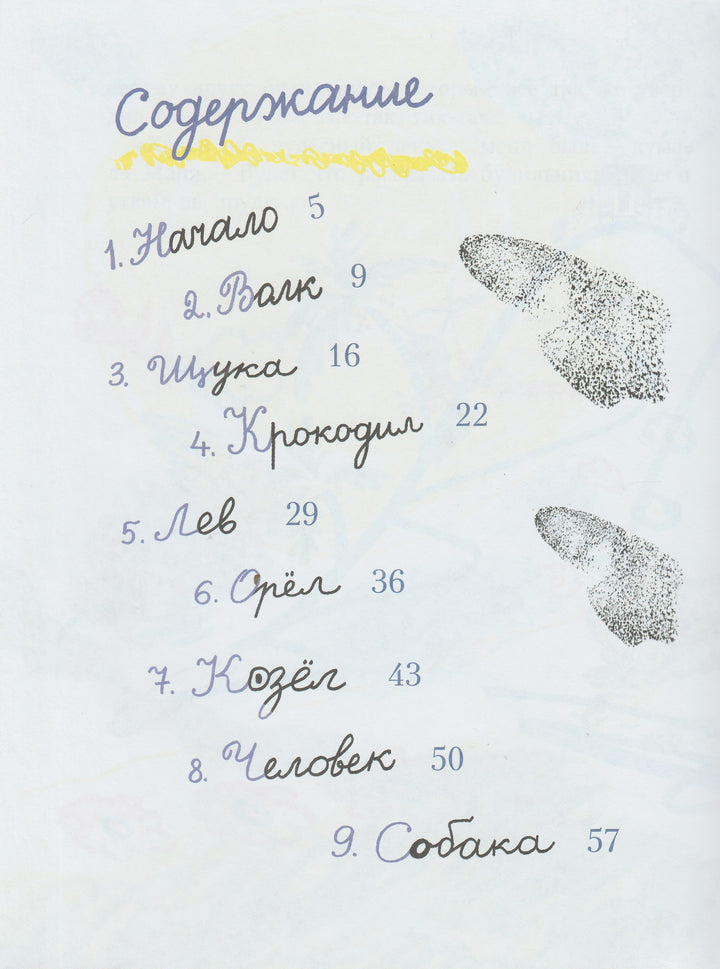 Содержание
1. Начало 5
2. Волк 9
3. Щука 16
4. Крокодил 22
5. Лев 29
6. Орёл 36
7. Козёл 43
8. Человек 50
9. Собака 57